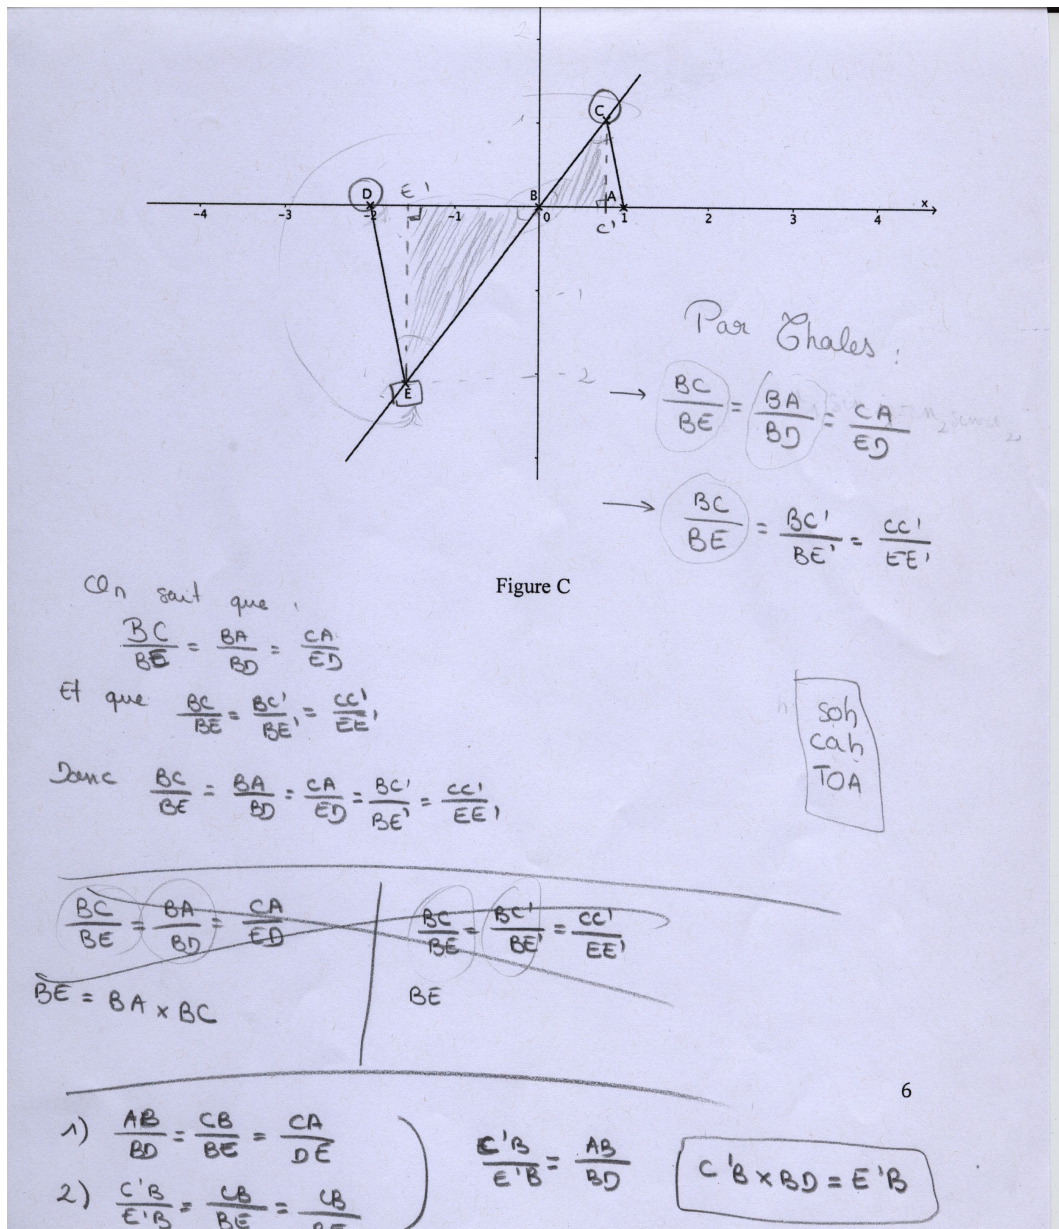 2
1
C
D
E'
B
A
x
-4
-3
-2
-1
0
1
2
3
4
C'
-1
-2
E
Par Thales :
→ BC/BE = BA/BD = CA/ED
→ BC/BE = BC'/BE' = CC'/EE'
Figure C
On sait que :
BC/BE = BA/BD = CA/ED
Et que BC/BE = BC'/BE' = CC'/EE'
soh
cah
TOA
Donc BC/BE = BA/BD = CA/ED = BC'/BE' = CC'/EE'
BC/BE = BA/BD = CA/ED
BE = BA x BC
BC/BE = BC'/BE' = CC'/EE'
BE
6
1) AB/BD = CB/BE = CA/DE
2) C'B/E'B = CB/BE = CB
C'B/E'B = AB/BD
C'B x BD = E'B